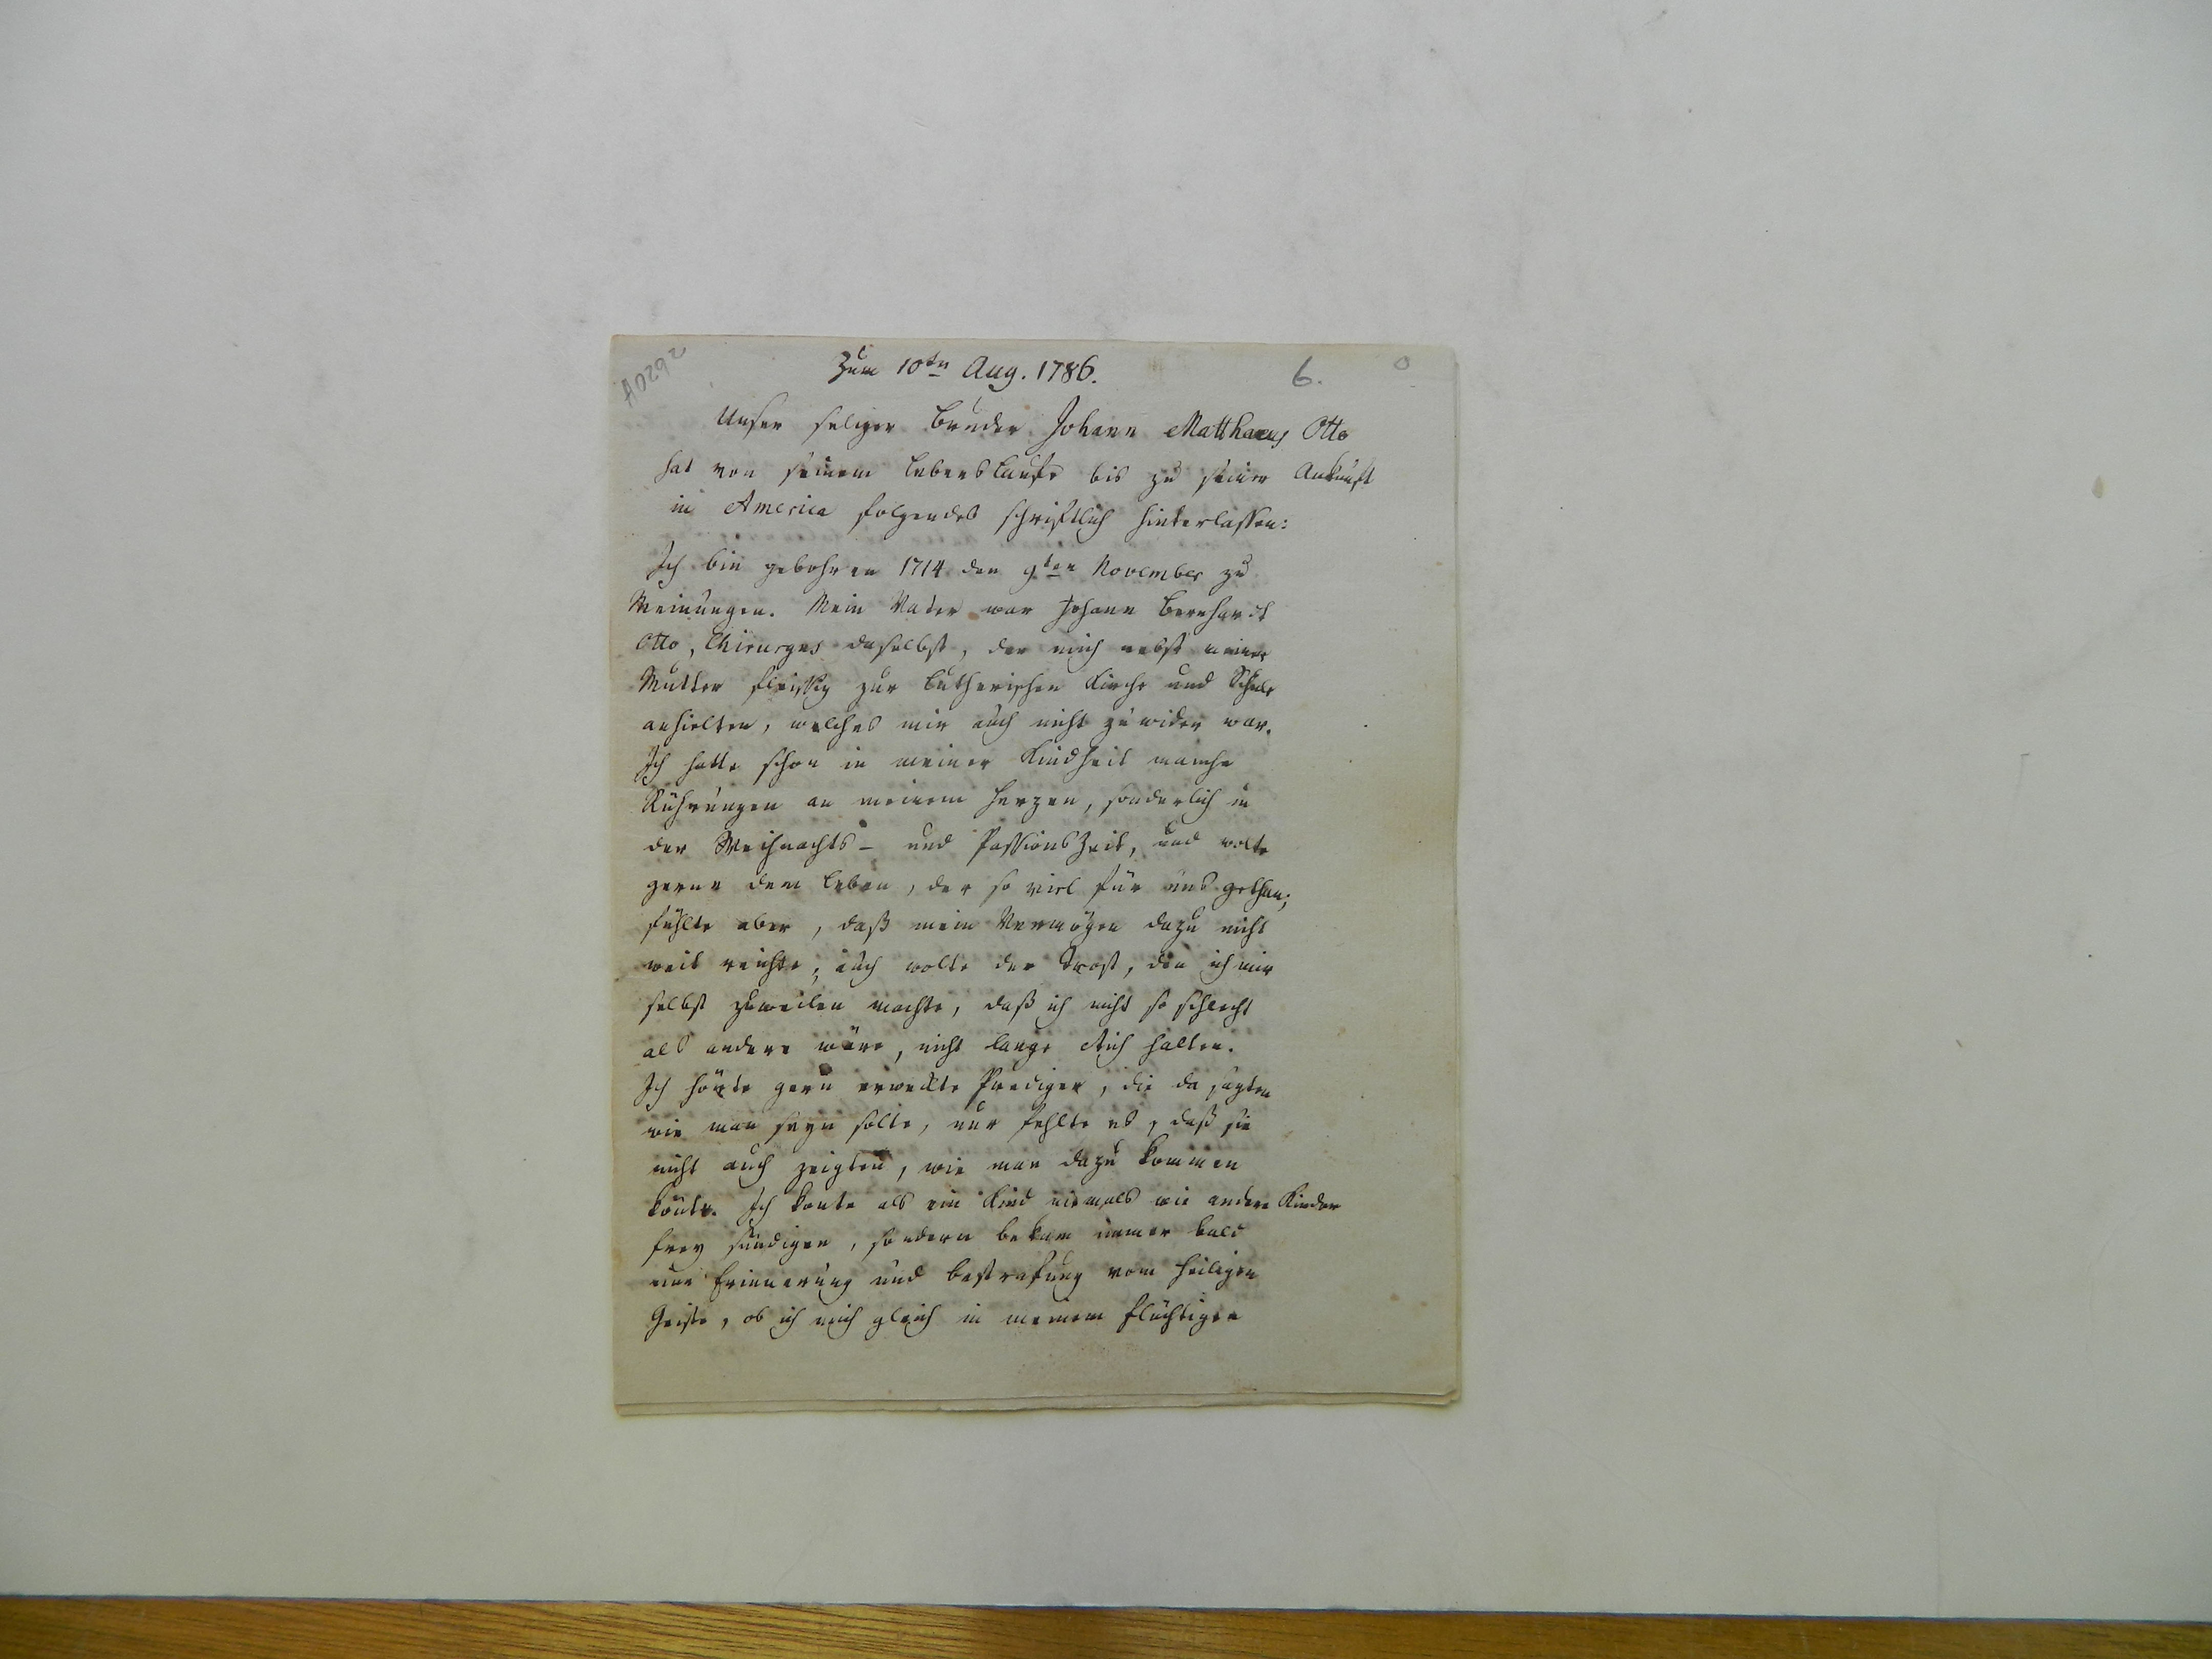 A0292
Zum 10ten Aug. 1786.
6.
Unser seliger Bruder Johann Matthaeus Otto
hat von seinem Lebenslaufe bis zu seiner Ankunft
in America folgendes schriftlich hinterlassen:
Ich bin gebohren 1714 den 9ten November zu
Meinungen. Mein Vater war Johann Bernhardt
Otto, Chirurgus daselbst, der mich nebst meiner
Mutter fleissig zur Lutherischen Kirche und Schule
anhielten, welches mir auch nicht zuwider war.
Ich hatte schon in meiner Kindheit manche
Rührungen an meinem Herzen, sonderlich in
der Weihnachts- und Passions Zeit, und wolte
gerne dem leben, der so viel für uns gethan;
fühlte aber, daß mein Vermögen dazu nicht
weit reichte; auch wolte der Trost, den ich mir
selbst zuweilen machte, daß ich nicht so schlecht
als andere wäre, nicht lange Stich halten.
Ich hörte gern erweckte Prediger, die da sagten
wie man seyn solte, nur fehlte es, daß sie
nicht auch zeigten, wie man dazu kommen
könte. Ich konte als ein Kind niemals wie andere Kinder
frey sündigen, sondern bekam immer bald
eine Erinnerung und Bestrafung vom heiligen
Geiste, ob ich mich gleich in meinem flüchtigen